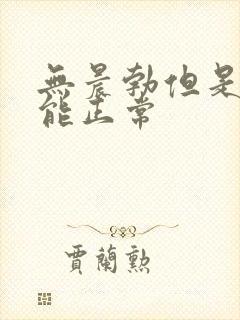 無晨勃但是
能正常
賈蘭勲